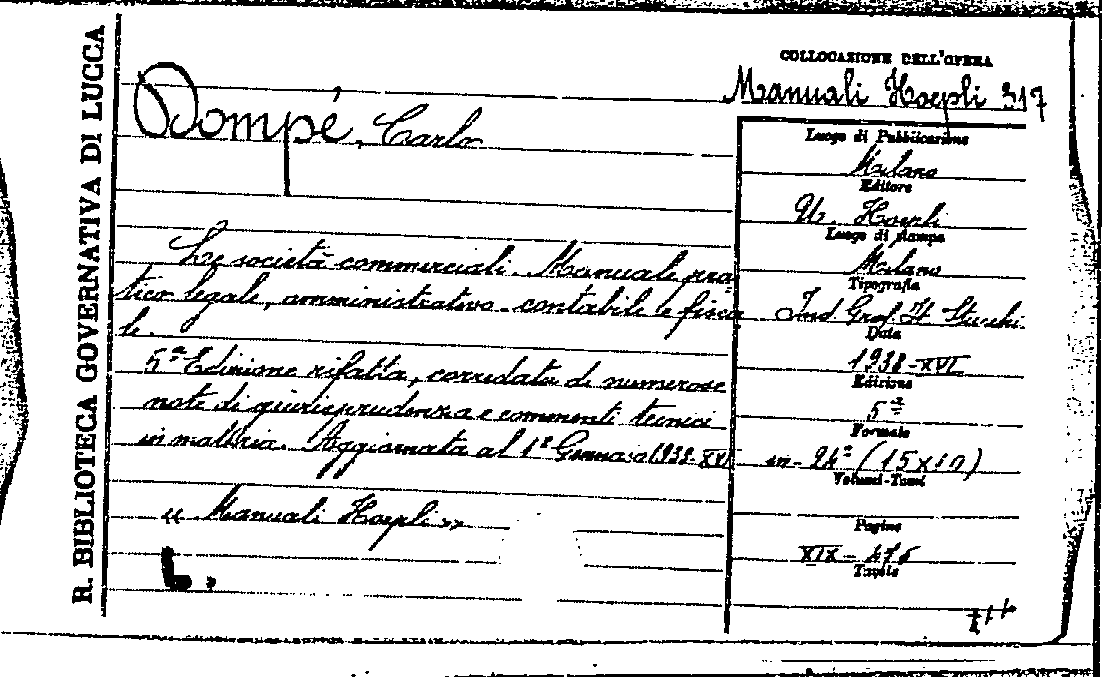 R. BIBLIOTECA GOVERNATIVA DI LUCCA
Dompé, Carlo
Le società commerciali. Manuale pra-
tico legale, amministrativo-contabile e fisca
le.
5ª Edizione rifatta, corredata di numerose
note di giurisprudenza e commenti tecnici
in materia. Aggiornata al 1º Gennaio 1938-XVI
« Manuali Hoepli »
L.
COLLOCAZIONE DELL'OPERA
Manuali Hoepli 317
Luogo di Pubblicazione
Milano
Editore
U. Hoepli
Luogo di stampa
Milano
Tipografia
Ind. Graf. Stucchi
Data
1938-XVI
Edizione
5ª
Formato
in-24º (15x10)
Volumi-Tomi
Pagine
XIX-476
Tavole